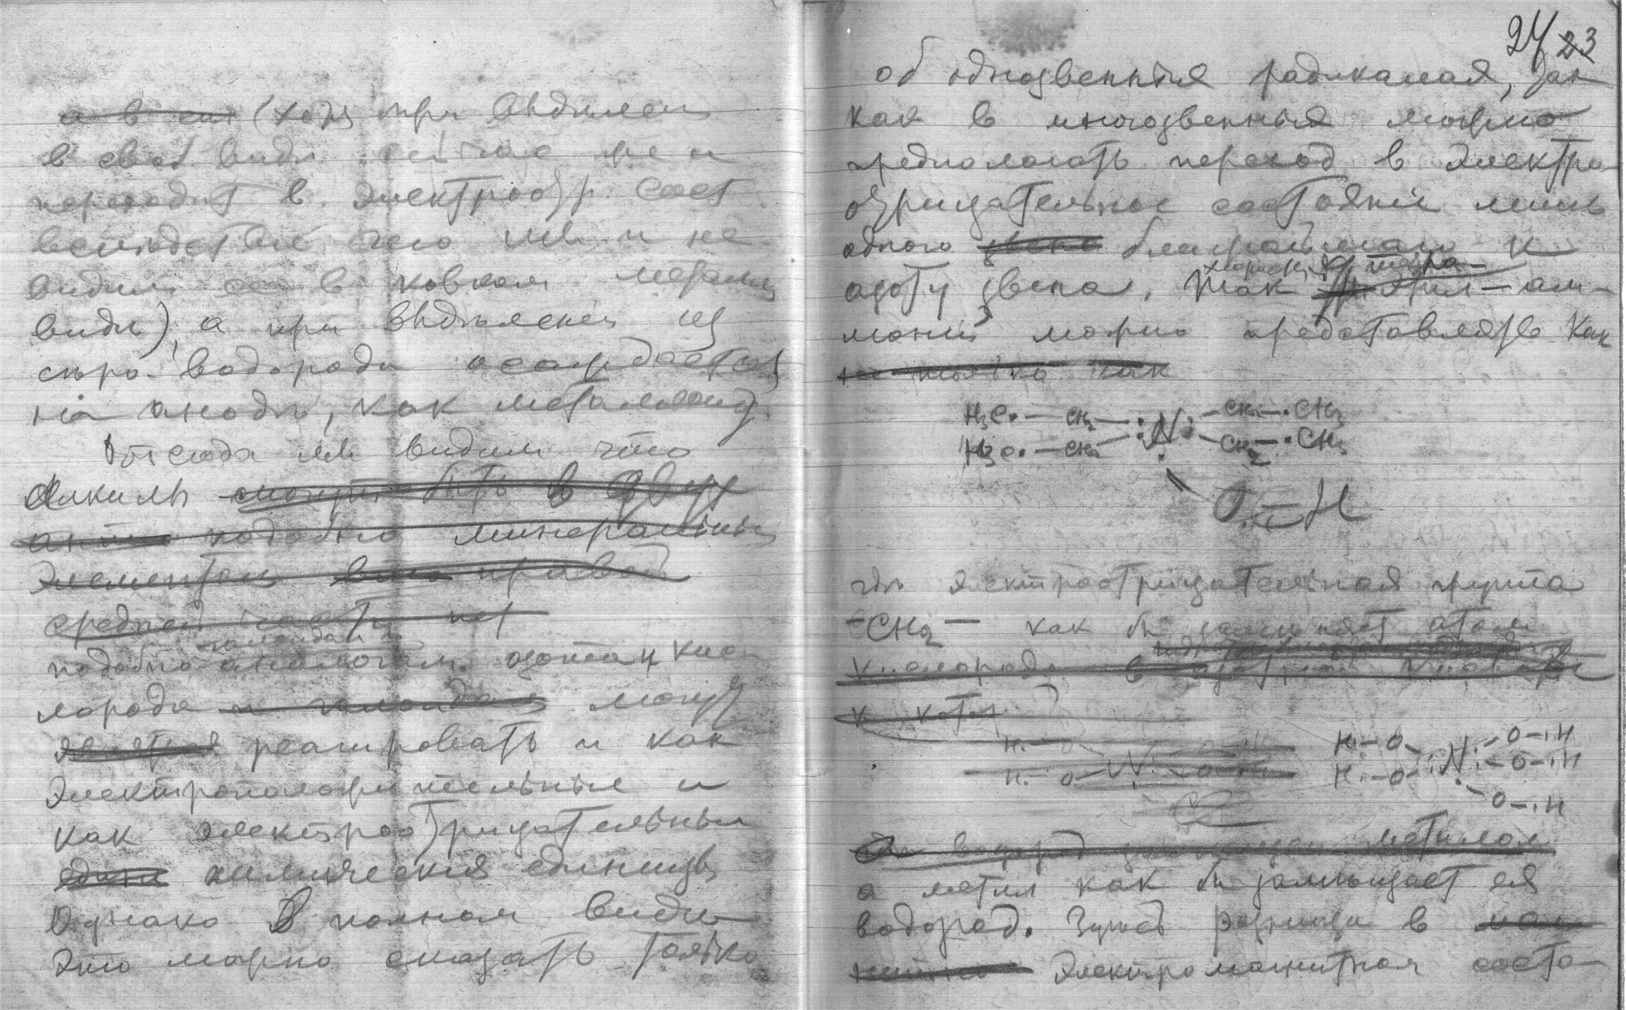 (хотя при выделен
в своб видѣ
переходит в электроотр. сост
вслѣдствіе чего мы и не
видим ее в ковком металлич
видѣ), а при выдѣленіи из
сѣро-водорода осаждается
на анодѣ, как металлоид.
Отсюда мы видим что
Алкилы могут быть в
подобно минеральным
элементам правой
средней части
подобно аналогам азота и кисл
лорода и могут
реагировать и как
электроположительные и
как электроотрицательныя
химическія единицы
Однако в полном видѣ
это можно сказать только
24 23
об однозвенныя радикалая, так
как в многозвенныя можно
предполагать переход в электро
отрицательное состояніе лишь
одного звена ближайшаго к
азоту звена. Так тетра
этил-ам-
моній можно представлять как
не только как
H3C·—CH2—:N:—CH2—·CH3
H3C·—CH2 CH2—·CH3
O—H
гдѣ электроотрицательная группа
=CH2— как бы замѣняет атом
кислорода в азотной
H·—O O—·H
H·—O N O—·H
O—·H
водород метилом
а метил как бы замѣщает ея
водород. Здѣсь разница в
электромагнитном состо